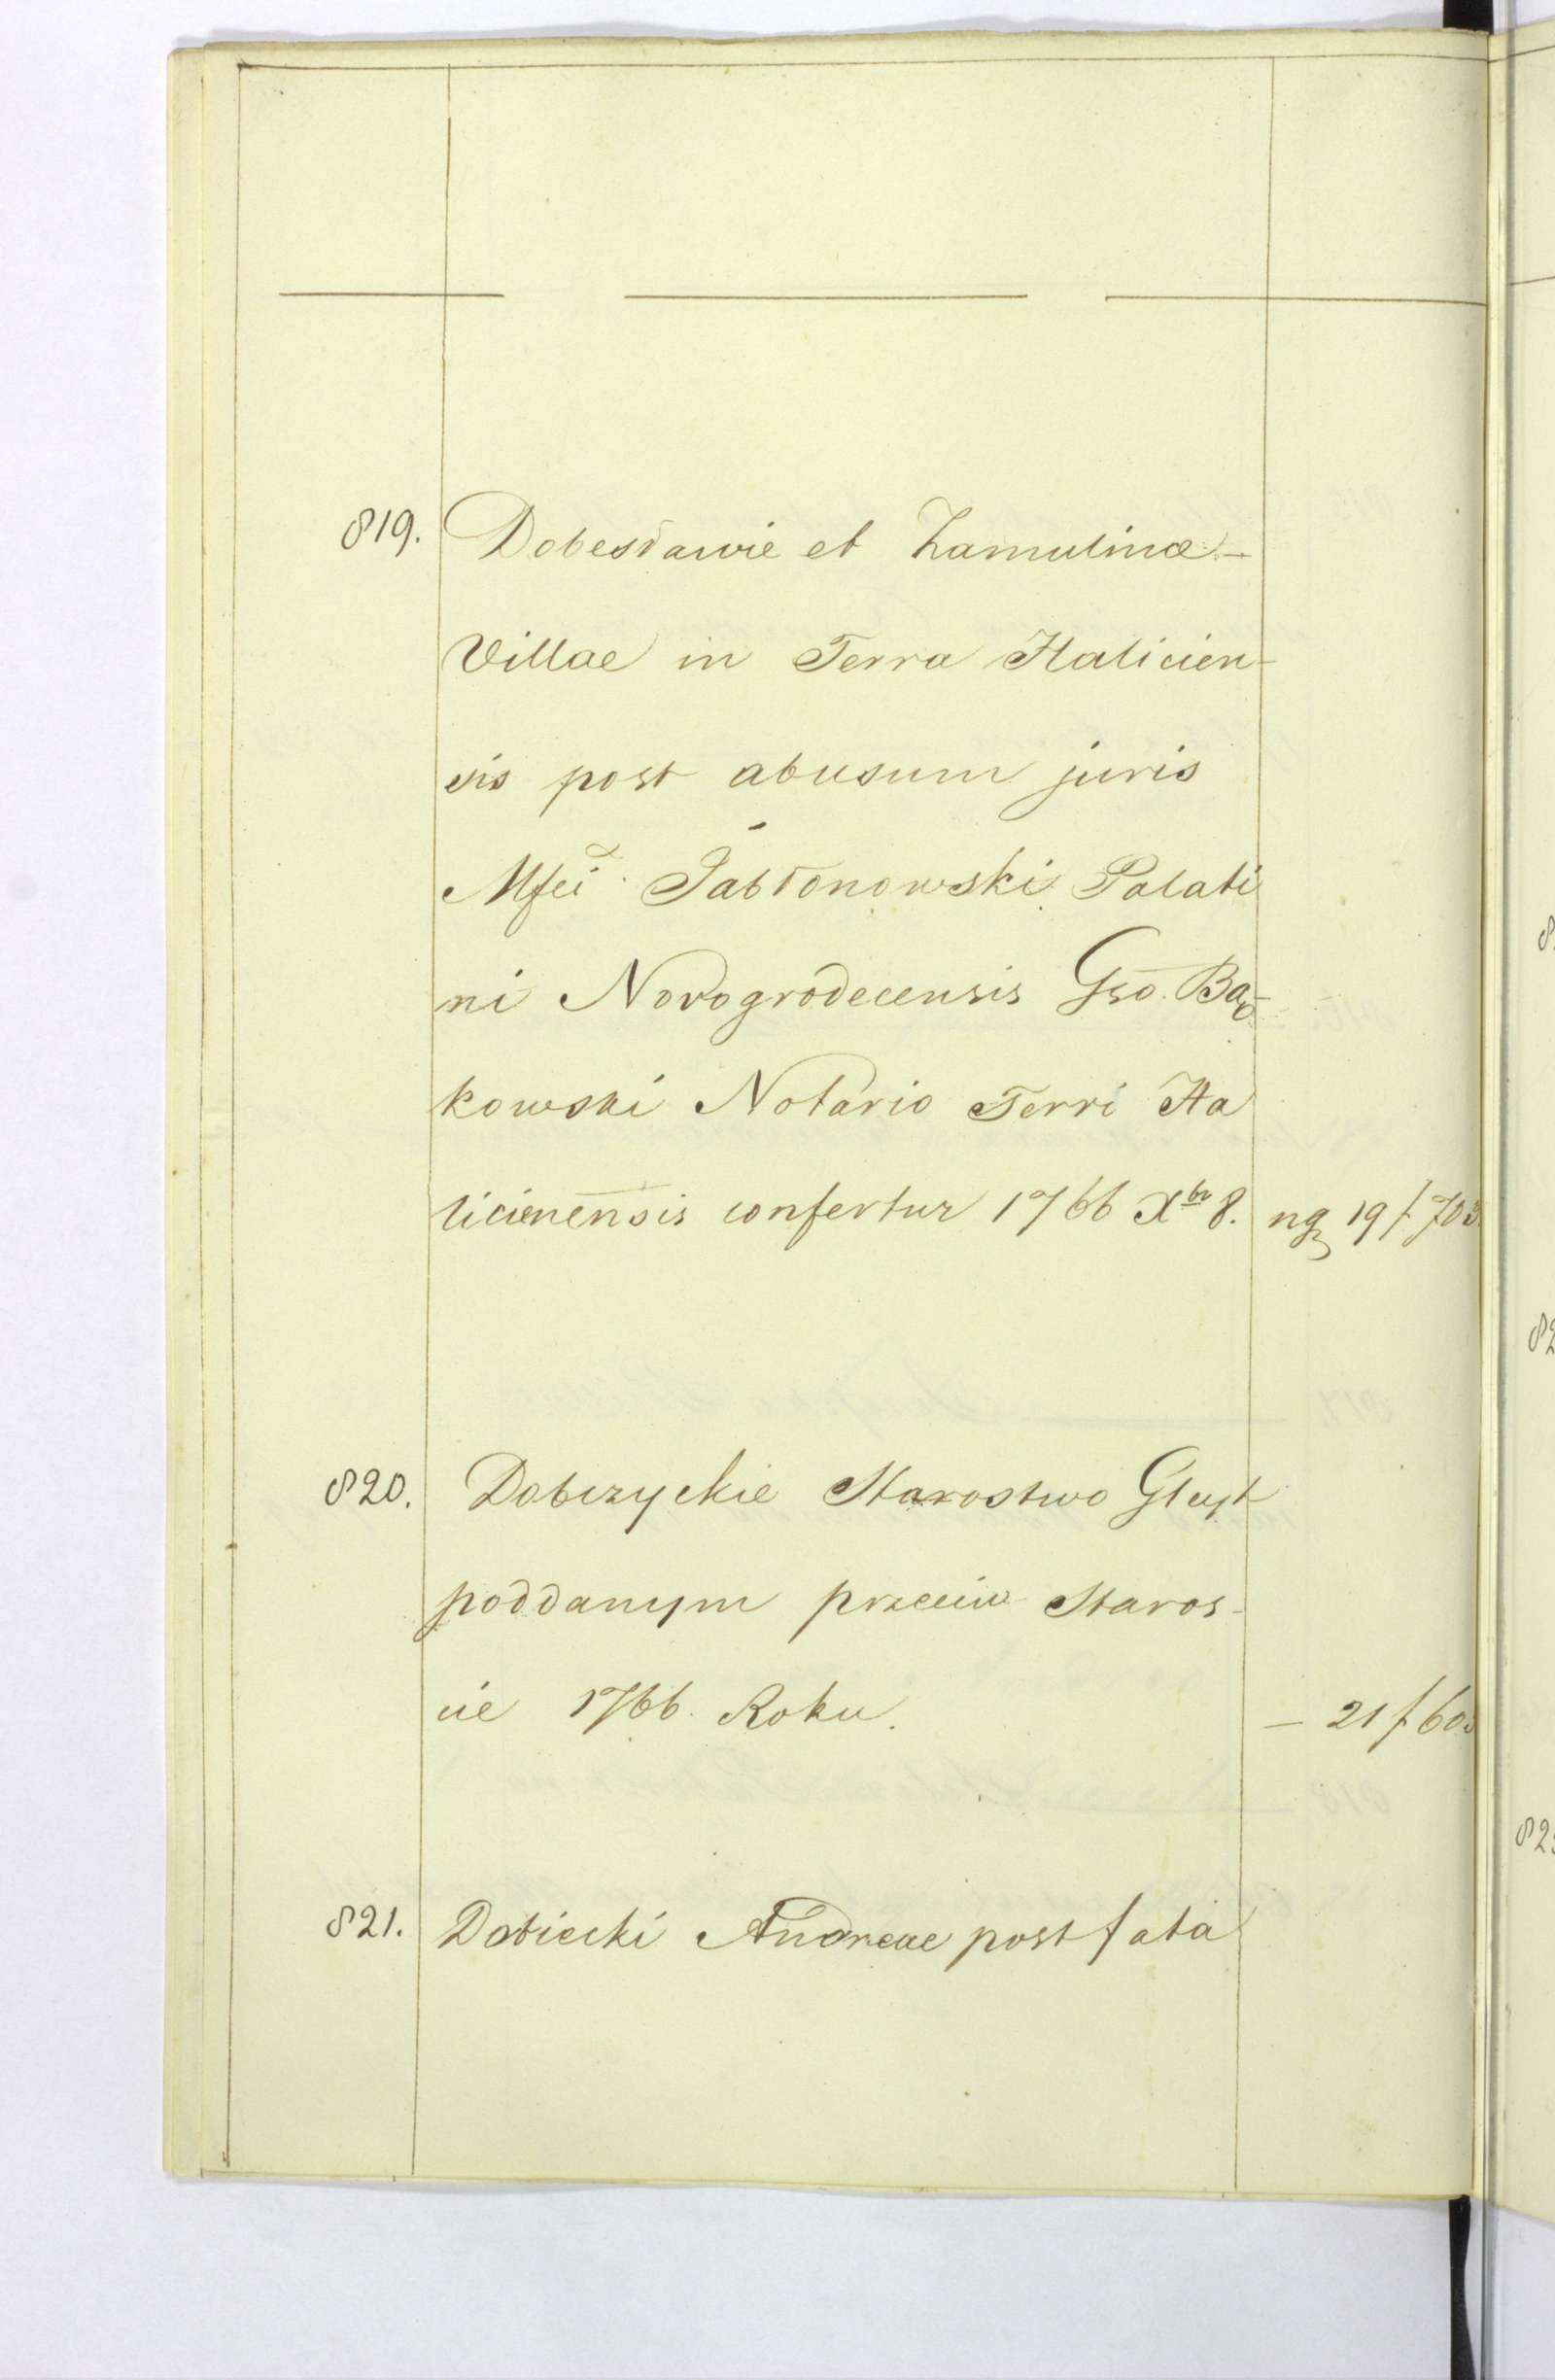 819. Dobesławie et Zamulince -
Villae in Terra Halicien-
sis post abusum juris
Mfci Jabłonowski Palati
ni Novogrodecensis Gso. Bą-
kowski Notario Terri Ha
licienensis confertur 1766 Xbr 8. ng 19 f. 703
820. Dobczyckie Starostwo Gleyt
poddanym przeciw Staros-
cie 1766. Roku. — 21 f. 603
821. Dobiecki Andreae post fata